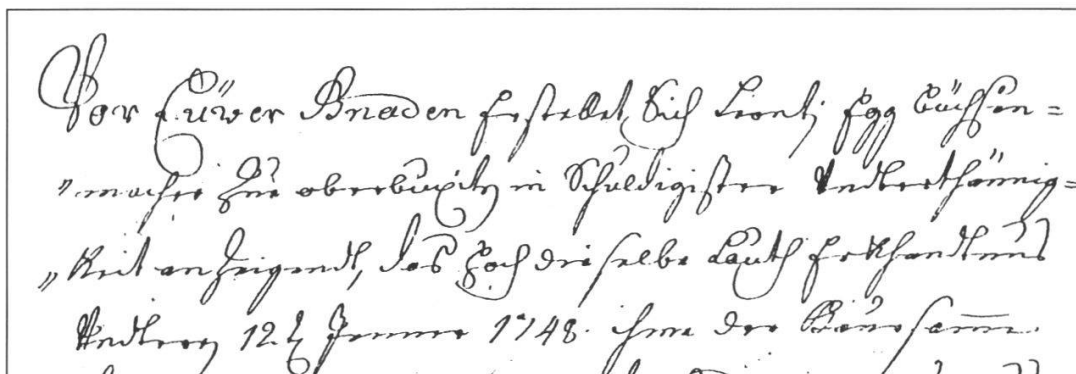 Vor Eüwer Gnaden Erstellet, Sich Leontj Egg büchsen=
"macher Zue oberbuxitj in Schuldigister Undterthännig=
"Keit an Zeigendt, das Hoch dieselbe Lauth Erkhandtnus
Undtern 12t Jenner 1748. ihme der